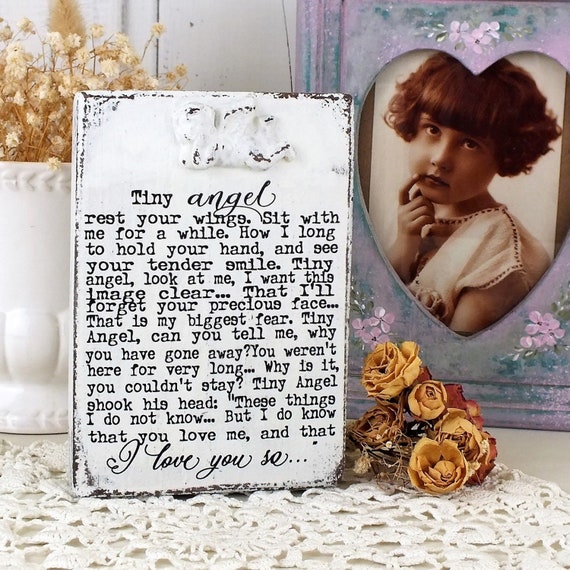 Tiny angel
rest your wings. Sit with
me for a while. How I long
to hold your hand, and see
your tender smile. Tiny
angel, look at me, I want this
image clear... That I'll
forget your precious face...
That is my biggest fear. Tiny
Angel, can you tell me, why
you have gone away?You weren't
here for very long... Why is it,
you couldn't stay? Tiny Angel
shook his head: "These things
I do not know... But I do know
that you love me, and that
I love you so...